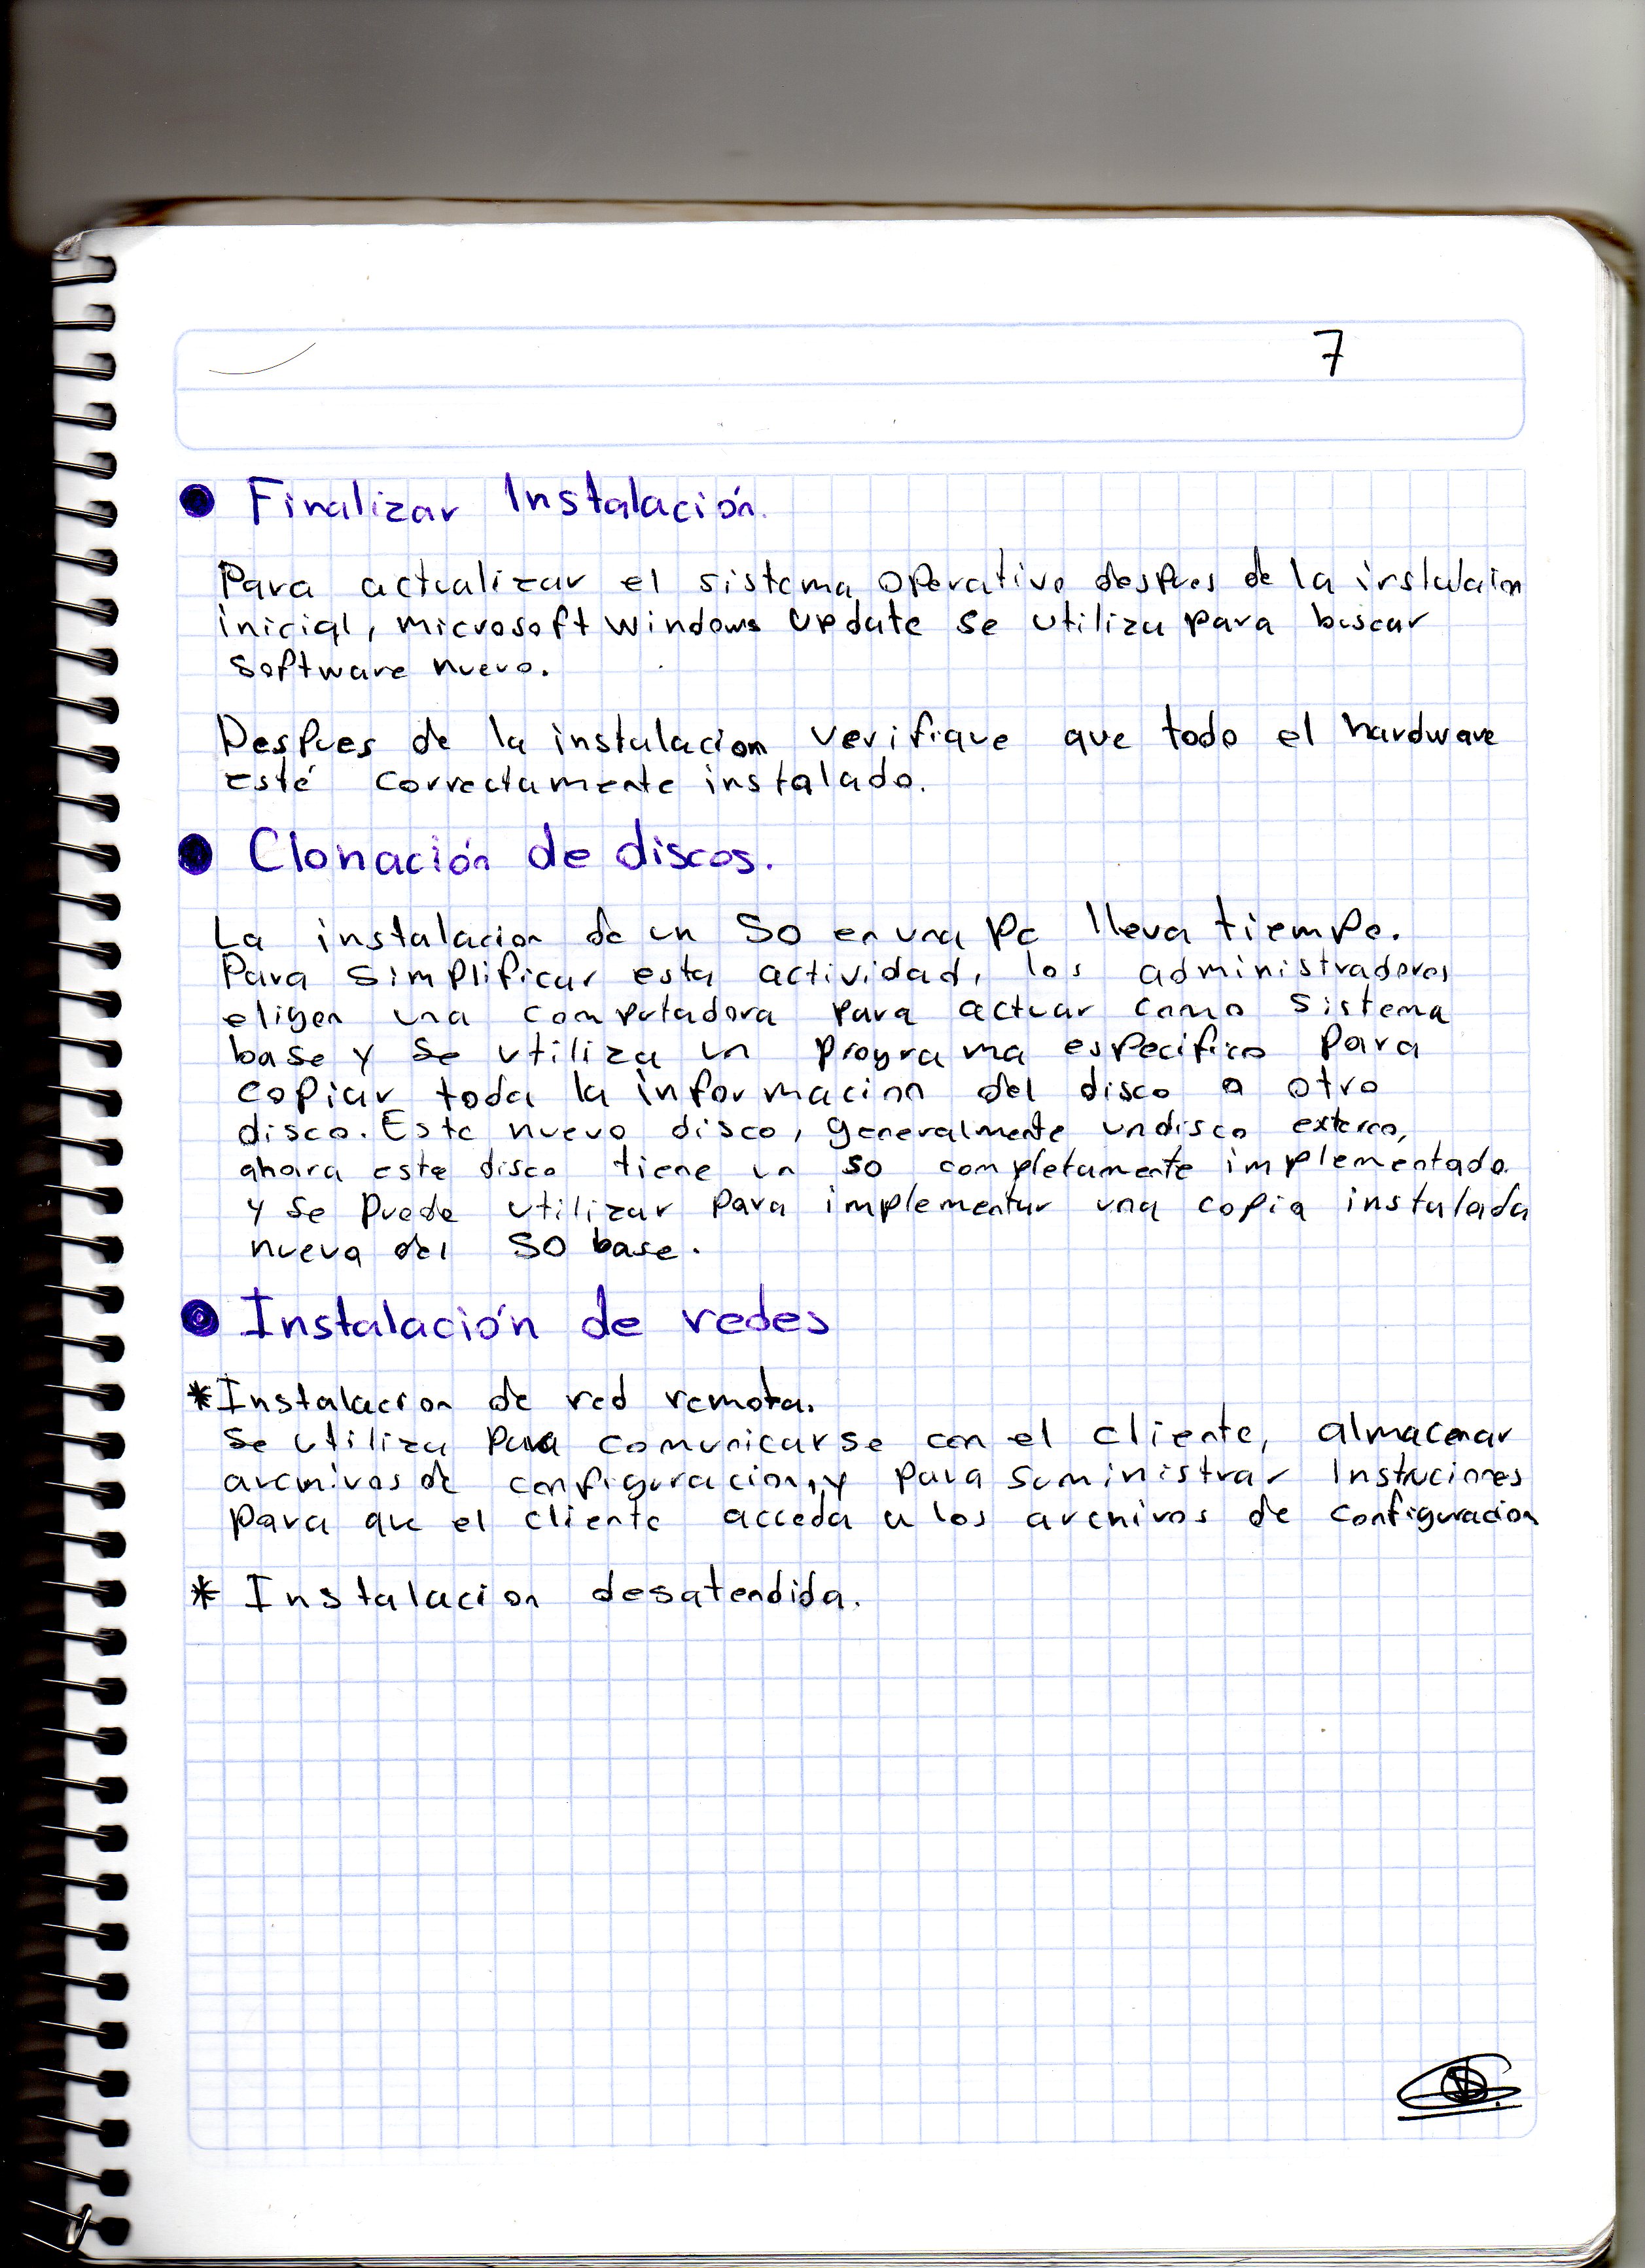 7
Finalizar Instalación.
Para actualizar el sistema operativo despues de la instalacion
inicial, microsoft windows update se utiliza para buscar
software nuevo.
Despues de la instalacion verifique que todo el hardware
esté correctamente instalado.
Clonación de discos.
La instalacion de un SO en una Pc lleva tiempo.
Para simplificar esta actividad, los administradores
eligen una computadora para actuar como sistema
base y se utiliza un programa especifico para
copiar toda la informacion del disco a otro
disco. Este nuevo disco, generalmente un disco externo,
ahora este disco tiene un so completamente implementado
y se puede utilizar para implementar una copia instalada
nueva del SO base.
Instalación de redes
*Instalacion de red remota.
Se utiliza para comunicarse con el cliente, almacenar
archivos de configuracion, y para suministrar Instruciones
para que el cliente acceda a los archivos de configuracion
* Instalacion desatendida.